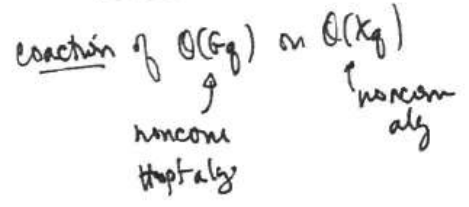 coaction of O(Gq) on O(Xq)
noncom
alg
noncom
Hopf alg.